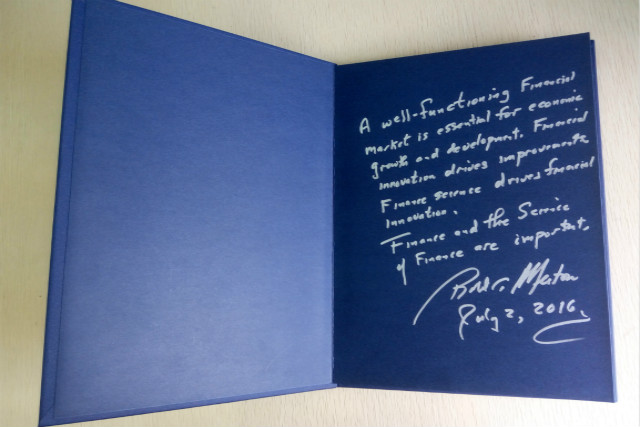 A well-functioning Financial
market is essential for economic
growth and development. Financial
innovation drives improvements.
Finance science drives financial
innovation.
Finance and the Science
of Finance are important.
Merton
July 2, 2016.